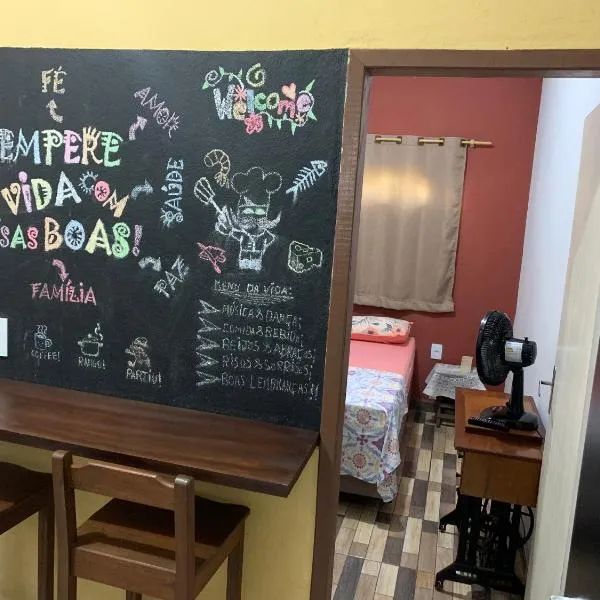 FÉ
AMOR
Welcome
EMPERE
VIDA COM
SAS BOAS!
SAÚDE
PAZ
FAMÍLIA
MENU DA VIDA:
MÚSICA & DANÇA;
COMIDA & BEBIDA;
BEIJOS & ABRAÇOS;
RISOS & SORRISOS;
BOAS LEMBRANÇAS!!
COFFEE!
RANGO!
PARTIU!